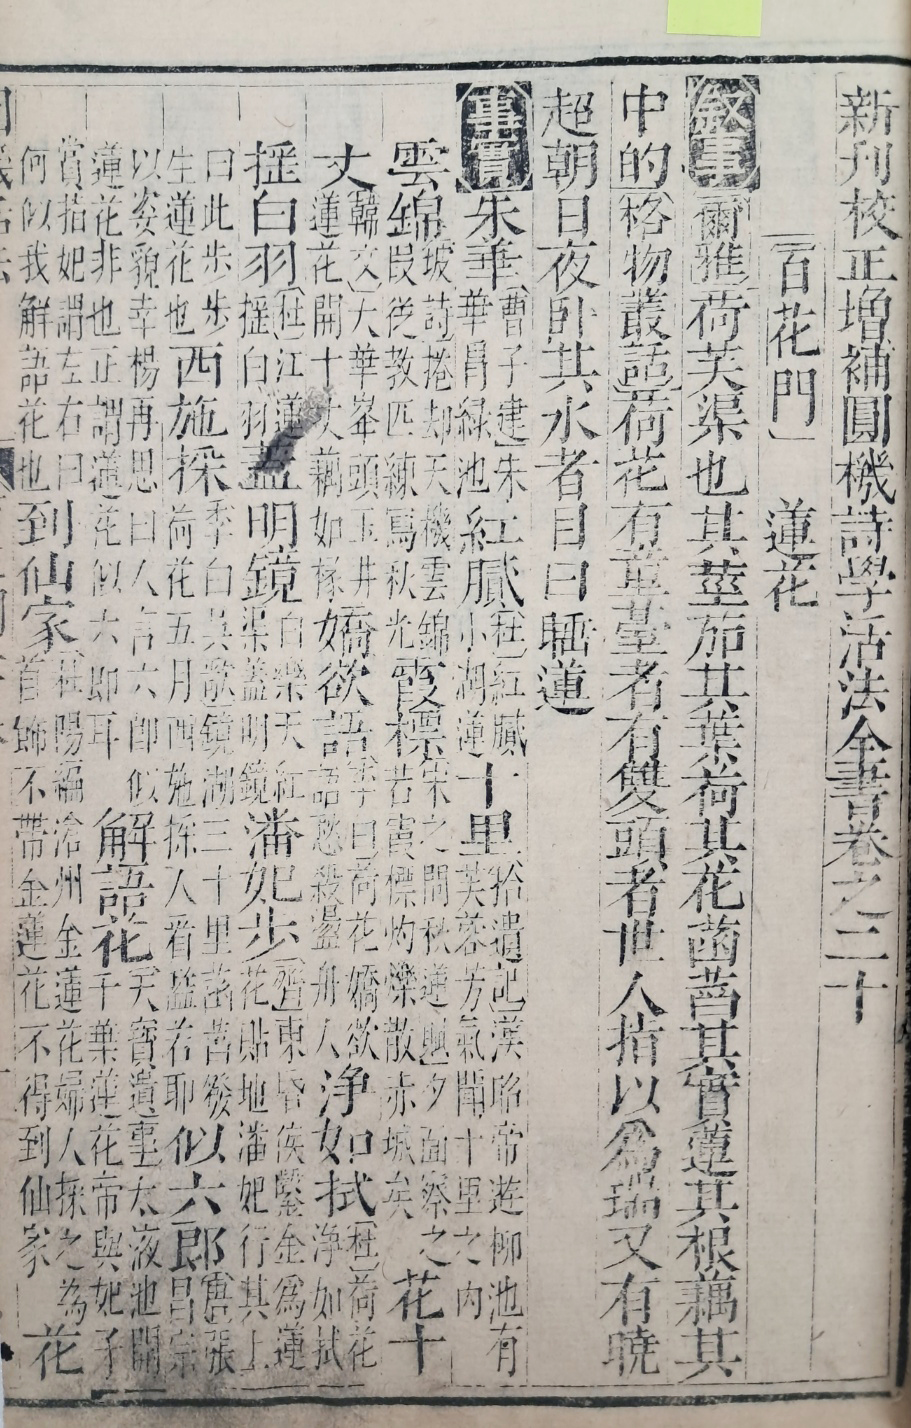 新刊校正增補圓機詩學活法全書卷之二十
百花門 蓮花
敘事 爾雅荷芙渠也其莖茄其葉荷其花菡萏其實蓮其根藕其
中的格物叢話荷花有重臺者有雙頭者世人指以為瑞又有曉
超朝日夜卧其水者目曰睡蓮
事實 朱華 曹子建朱華冒綠池 紅膩 杜紅膩小湖蓮 十里 拾遺記漢昭帝遊柳池有芙蓉芳氣聞十里之内
雲錦 坡詩捲却天機雲錦段從教匹練寫秋光 霞標 宋之問秋蓮興夕面察之若霞標灼爍散赤城矣 花十
丈 韓文大華峯頭玉井蓮花開十丈藕如椽 嬌欲語 李曰荷花嬌欲語愁殺盪舟人 淨如拭 杜荷花淨如拭
搖白羽 杜江蓮搖白羽 蓋明鏡 白樂天紅渠蓋明鏡 潘妃步 齊東昏侯鑿金為蓮花貼地潘妃行其上
曰此步步生蓮花也 西施採 李白吳歌鏡湖三十里菡萏發荷花五月西施採人看隘若耶 似六郎 唐張昌宗
以姿貌幸楊再思曰人言六郎似蓮花非也正謂蓮花似六郎耳 解語花 天寶遺事太液池開千葉蓮花帝與妃子
賞指妃謂左右曰何似我解語花也 到仙家 杜陽編滄州金蓮花婦人採之為首飾不帶金蓮花不得到仙家 花